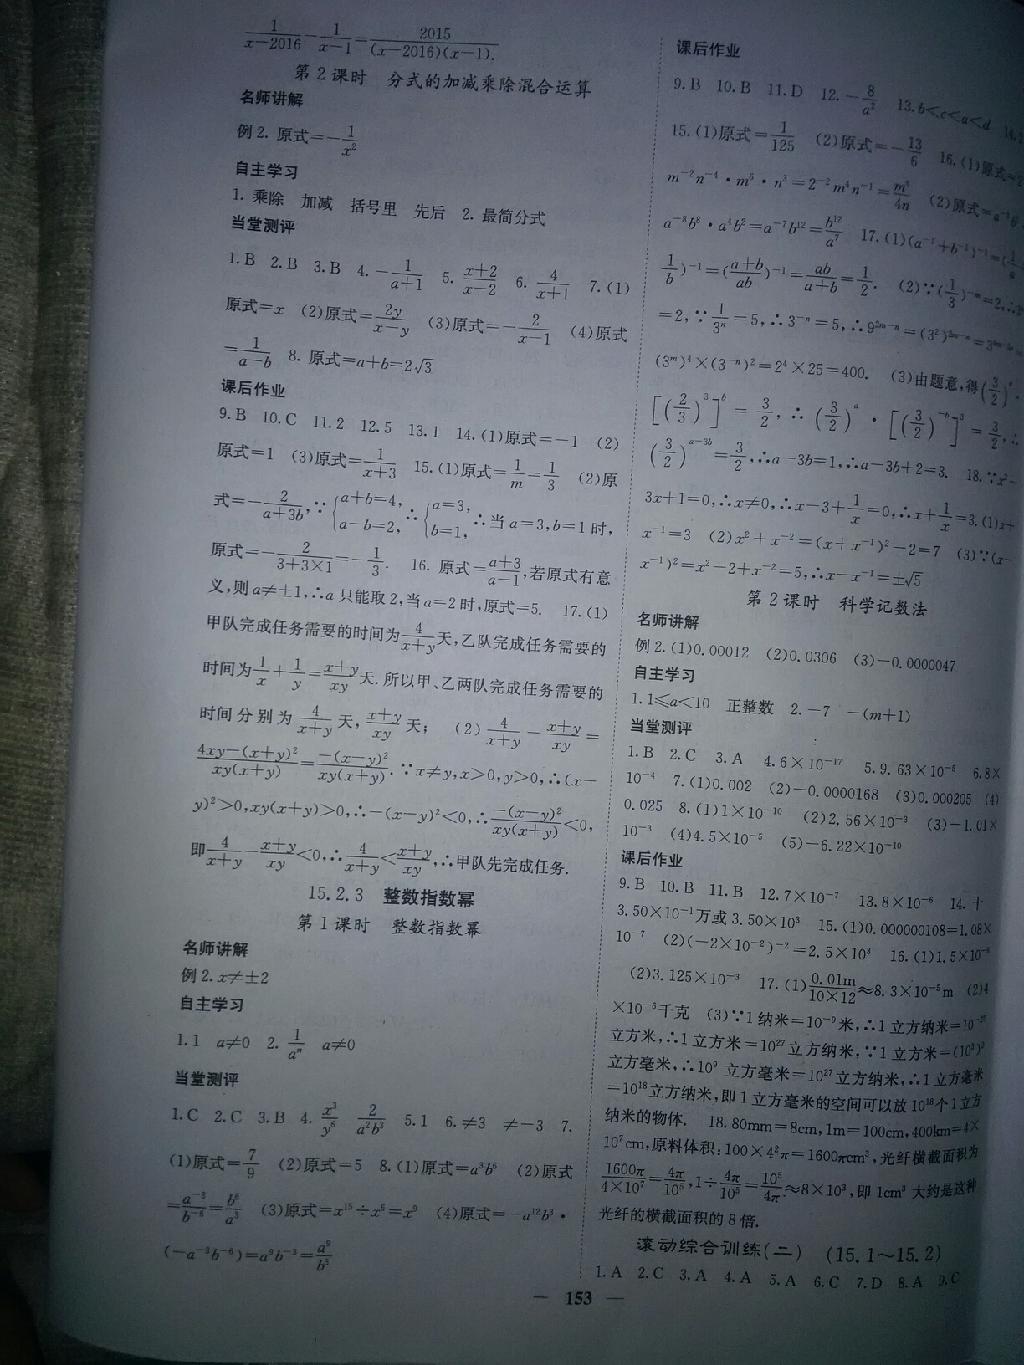 1/(x-2016) - 1/(x-1) = 2015/((x-2016)(x-1)).
第2课时 分式的加减乘除混合运算
名师讲解
例2. 原式=-1/x²
自主学习
1. 乘除 加减 括号里 先后 2. 最简分式
当堂测评
1.B 2.B 3.B 4.-1/(a+1) 5.(x+2)/(x-2) 6.4/(x+1) 7.(1)
原式=x (2)原式=2y/(x-y) (3)原式=-2/(x-1) (4)原式
=1/(a-b) 8. 原式=a+b=2√3
课后作业
9.B 10.C 11.2 12.5 13.1 14.(1)原式=-1 (2)
原式=1 (3)原式=1/(x+3) 15.(1)原式=1/m=1/3 (2)原
式=-2/(a+3b),∵{a+b=4, a-b=2, ∴{a=3, b=1, ∴当a=3,b=1时,
原式=-2/(3+3×1)=-1/3. 16. 原式=(a+3)/(a-1),若原式有意
义,则a≠±1,∴a只能取2,当a=2时,原式=5. 17.(1)
甲队完成任务需要的时间为4/(x+y)天,乙队完成任务需要的
时间为1/x+1/y=(x+y)/xy天.所以甲、乙两队完成任务需要的
时间分别为4/(x+y)天,(x+y)/xy天; (2)4/(x+y)-(x+y)/xy=
(4xy-(x+y)²)/(xy(x+y))=(-(x-y)²)/(xy(x+y)).∵x≠y,x>0,y>0,∴(x-
y)²>0,xy(x+y)>0,∴-(x-y)²<0,∴(-(x-y)²)/(xy(x+y))<0,
即4/(x+y)-(x+y)/xy<0,∴4/(x+y)<(x+y)/xy,∴甲队先完成任务.
15.2.3 整数指数幂
第1课时 整数指数幂
名师讲解
例2.x≠±2
自主学习
1.1 a≠0 2.1/aⁿ a≠0
当堂测评
1.C 2.C 3.B 4. 5.1 6.≠3 ≠-3 7.
(1)原式=7/9 (2)原式=5 8.(1)原式=a³b⁶ (2)原式
(3)原式=x¹⁵÷x⁶=x⁹ (4)原式=-a¹²b³·
(-a⁻³b⁻⁶)=a⁹b⁻³=a⁹/b³
课后作业
9.B 10.B 11.D 12.-8/a² 13.b<c<a<d
15.(1)原式=1/125 (2)原式=-13/6 16.(1)原式=
(2)原式=
17.(1)(a⁻¹+b⁻¹)⁻¹=
1/b)⁻¹=((a+b)/ab)⁻¹=ab/(a+b)=1/2. (2)∵(1/3)⁻ᵐ=2,
=2,∵1/3ⁿ=5,∴3⁻ⁿ=5,
(3ᵐ)⁴×(3⁻ⁿ)²=2⁴×25=400. (3)由题意,得
[(2/3)³]ᵇ=3/2,∴(3/2)ᵃ·[(3/2)⁻ᵇ]³=3/2,∴
(3/2)ᵃ⁻³ᵇ=3/2,∴a-3b=1,∴a-3b+2=3. 18.∵x²-
3x+1=0,∴x≠0,∴x-3+1/x=0,∴x+1/x=3.(1)x+
x⁻¹=3 (2)x²+x⁻²=(x+x⁻¹)²-2=7 (3)∵(x-
x⁻¹)²=x²-2+x⁻²=5,∴x-x⁻¹=±√5
第2课时 科学记数法
名师讲解
例2.(1)0.00012 (2)0.0306 (3)-0.0000047
自主学习
1.1≤a<10 正整数 2.-7 -(m+1)
当堂测评
1.B 2.C 3.A 5.9.63×10⁻⁵ 6.8×
10⁻⁴ 7.(1)0.002 (2)-0.0000168 (3)0.000205 (4)
0.025 8.(1)1×10 (2)2.56×10⁻³ (3)-1.01×
10⁻³ (4)4.5×10⁻⁵ (5)-6.22×10⁻¹⁰
课后作业
9.B 10.B 11.B 12.7×10⁻⁷ 13.8×10⁻⁶ 14.十
3.50×10⁻¹万或3.50×10³ 15.(1)0.000000108=1.08×
10⁻⁷ (2)(-2×10⁻²)⁻²=2.5×10³ 16.(1)1.5×10
(2)3.125×10⁻³ 17.(1)0.01m/(10×12)≈8.3×10⁻⁵m (2)4
×10⁻⁵千克 (3)∵1纳米=10⁻⁹米,∴1立方纳米=10⁻²⁷
立方米,∴1立方米=10²⁷立方纳米,∵1立方米=(10³)³
立方毫米,∴10⁹立方毫米=10²⁷立方纳米,∴1立方毫米
=10¹⁸立方纳米,即1立方毫米的空间可以放10¹⁸个1立方
纳米的物体. 18.80mm=8cm,1m=100cm,400km=4×
10⁷cm,原料体积:100×4²π=1600πcm³,光纤横截面积为
1600π/(4×10⁷)=4π/10⁵,1÷4π/10⁵=10⁵/4π≈8×10³,即1cm²大约是这种
光纤的横截面积的8倍.
滚动综合训练(二) (15.1~15.2)
1.A 2.C 3.A 4.A 5.A 6.C 7.D 8.A 9.C
— 153 —